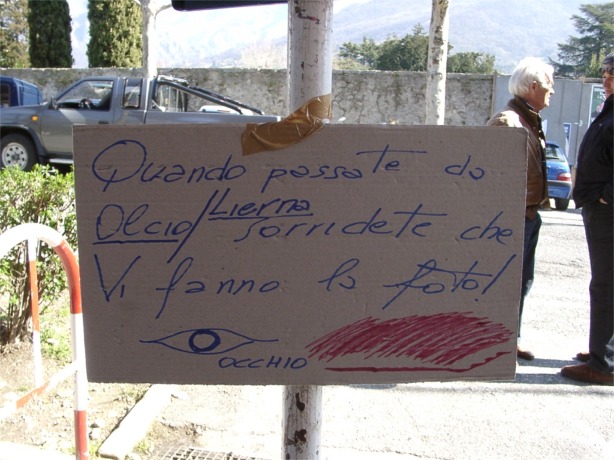 Quando passate da
Olcio/Lierna sorridete che
Vi fanno la foto!
OCCHIO